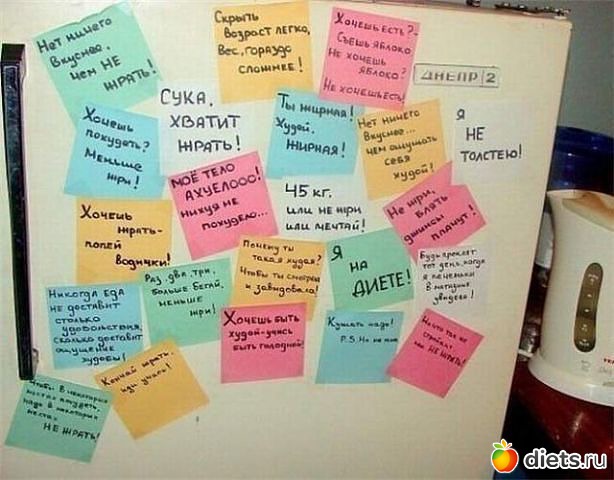 Нет ничего
вкуснее,
чем НЕ
ЖРАТЬ!
Скрыть
возраст легко,
Вес, гораздо
сложнее!
Хочешь есть?-
Съешь яблоко
Не хочешь
яблоко?
Не хочешь есть!
ДНЕПР 2
Хочешь
похудеть?
Меньше
жри!
СУКА,
ХВАТИТ
ЖРАТЬ!
Ты жирная!
Худей,
ЖИРНАЯ!
Нет ничего
вкуснее...
чем ощущать
себя
худой!
Я
НЕ
ТОЛСТЕЮ!
Хочешь
жрать-
попей
водички!
МОЁ ТЕЛО
АХУЕЛООО!
нихуя не
похудело...
45 кг.
или не жри
или мечтай!
Не жри,
блять
джинсы
плачут!
Никогда еда
не доставит
столько
удовольствия,
сколько доставит
ощущение
худобы!
Раз, два, три,
больше бегай,
меньше
жри!
Почему ты
такая худая?
Чтобы ты смотрела
и завидовала!
Я
НА
ДИЕТЕ!
Будь проклят
тот день, когда
я печеньки
в магазине
увидела!
Чтобы в некоторых
местах похудеть,
надо в некоторых
местах
НЕ ЖРАТЬ!
Кончай жрать,
иди учись!
Хочешь быть
худой-учись
быть голодной!
Кушать надо!
P.S. Но не мне
НЕ ЖРАТЬ!
diets.ru